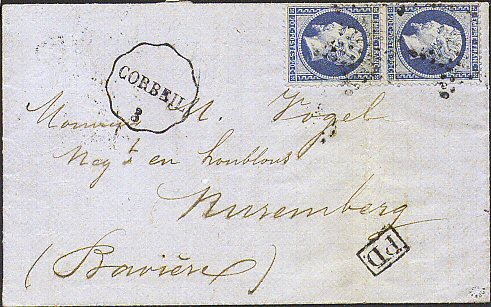 CORBEIL
3
Monsieur N. Vogel
Neg.t en houblons
Nuremberg
(Bavière)
PD